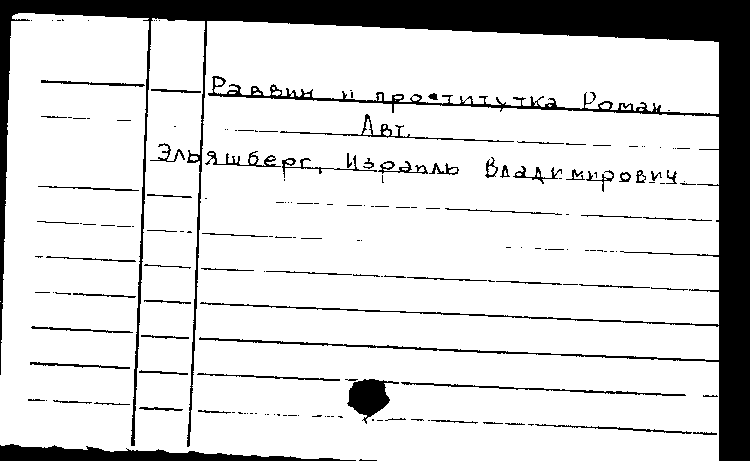 Раввин и проститутка Роман.
Авт.
Эльяшберг, Израиль Владимирович.